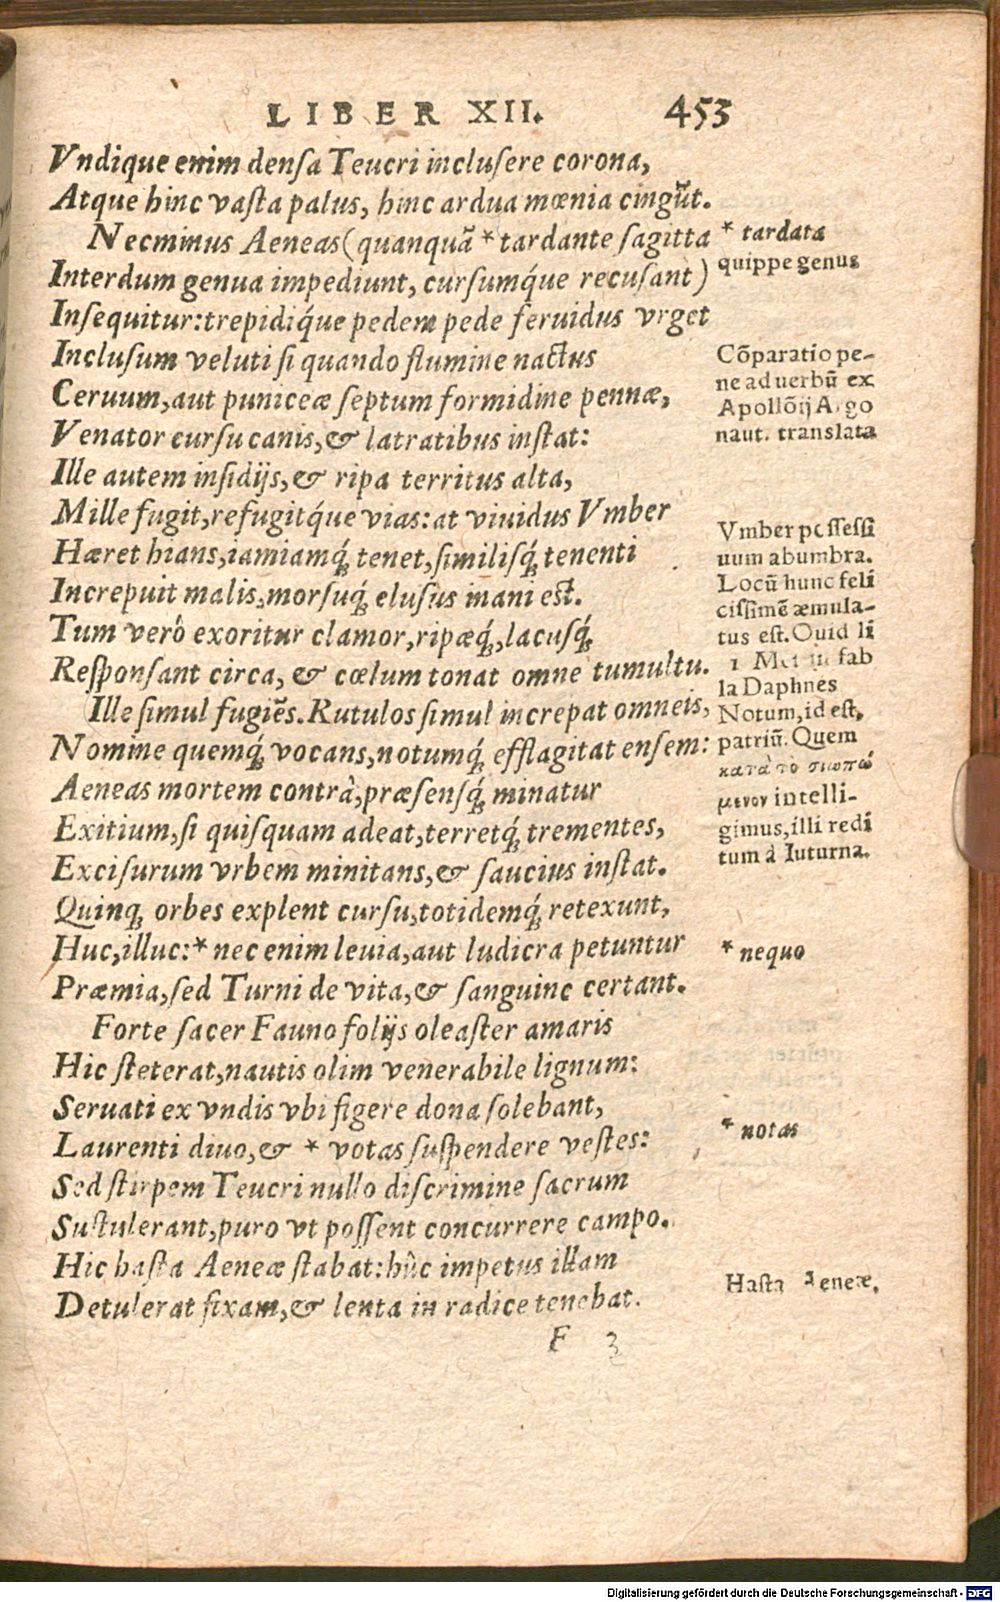 LIBER XII. 453
Vndique enim densa Teucri inclusere corona,
Atque hinc vasta palus, hinc ardua mœnia cingūt.
Necminus Aeneas (quanquā * tardante sagitta
Interdum genua impediunt, cursumq́ue recusant)
Insequitur: trepidiq́ue pedem pede feruidus vrget
Inclusum veluti si quando flumine nactus
Ceruum, aut puniceæ septum formidine pennæ,
Venator cursu canis, & latratibus instat:
Ille autem insidijs, & ripa territus alta,
Mille fugit, refugitq́ue vias: at viuidus Vmber
Hæret hians, iamiamq́; tenet, similisq́; tenenti
Increpuit malis, morsuq́; elusus inani est.
Tum verò exoritur clamor, ripæq́;, lacusq́;
Responsant circa, & cœlum tonat omne tumultu.
Ille simul fugiēs. Rutulos simul increpat omneis,
Nomine quemq́; vocans, notumq́; efflagitat ensem:
Aeneas mortem contrà, præsensq́; minatur
Exitium, si quisquam adeat, terretq́; trementes,
Excisurum vrbem minitans, & saucius instat.
Quinq; orbes explent cursu, totidemq́; retexunt,
Huc, illuc: * nec enim leuia, aut ludicra petuntur
Præmia, sed Turni de vita, & sanguine certant.
Forte sacer Fauno folijs oleaster amaris
Hic steterat, nautis olim venerabile lignum:
Seruati ex vndis vbi figere dona solebant,
Laurenti diuo, & * votas suspendere vestes:
Sed stirpem Teucri nullo discrimine sacrum
Sustulerant, puro vt possent concurrere campo.
Hic hasta Aeneæ stabat: hûc impetus illam
Detulerat fixam, & lenta in radice tenebat.
F 3
* tardata
quippe genus
Cōparatio pe-
ne ad uerbū ex
Apollōij Argo
naut. translata
Vmber possessi
uum abumbra.
Locū hunc feli
cissimē æmula-
tus est. Ouid lī
1 Met in fab
la Daphnes
Notum, id est,
patriū. Quem
κατὰ τὸ σιωπώ
μενον intelli-
gimus, illi redī
tum à Iuturna.
* nequo
* notas
Hasta Aeneæ.
Digitalisierung gefördert durch die Deutsche Forschungsgemeinschaft - DFG